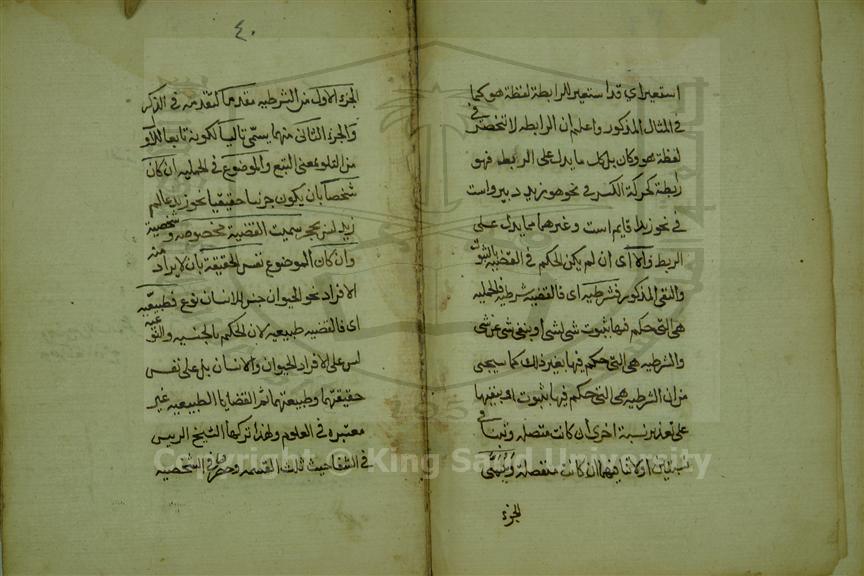 استعير اي قد استعير الرابطة لفظة هو كما
في المثال المذكور واعلم ان الرابطه لا تنحصر في
لفظة هو وكان بل كل ما يدل على الربط فهو
رابطة كحركة الكسر في نحو هو زيد دبير واست
في نحو زيد قايم است وغيرهما مما يدل على
الربط والا اى ان لم يكن الحكم في القضيه الثبوت
والنفى المذكور فشرطية اى فالقضيه شرطية فالحمليه
هى التى حكم فيها بثبوت شى لشى او بنفى شى عن شى
والشرطيه هى التى حكم فيها بغير ذلك كما سيجى
من ان الشرطيه هى التى حكم فيها بثبوت او بنفيها
على تقدير نسبة اخرى ان كانت متصله وتنافى
نسبتين او لا تنافيهما ان كانت منفصله ويسمى
الجزء
٤٠
الجزء الاول من الشرطيه مقدما لتقدمه في الذكر
والجزء الثانى منهما يسمى تاليا لكونه تابعا للاو
من التلو بمعنى التبع والموضوع في الحمليه ان كان
شخصا بان يكون جزئيا حقيقيا نحو زيد عالم
زيد ليس بحجر سميت القضية مخصوصه وشخصية
وان كان الموضوع نفس الحقيقة بان لا يراد منه
الافراد نحو الحيوان جنس الانسان نوع فطبيعيه
اى فالقضيه طبيعيه لان الحكم بالجنسيه والنوعيه
ليس على الافراد الحيوان والانسان بل على نفس
حقيقتهما وطبيعتهما ثم القضايا الطبيعيه غير
معتبره في العلوم ولهذا تركها الشيخ الرييس
في الشفا حيث ثلث القسمه وحصر في الشخصيه
Copyright © King Saud University
1957